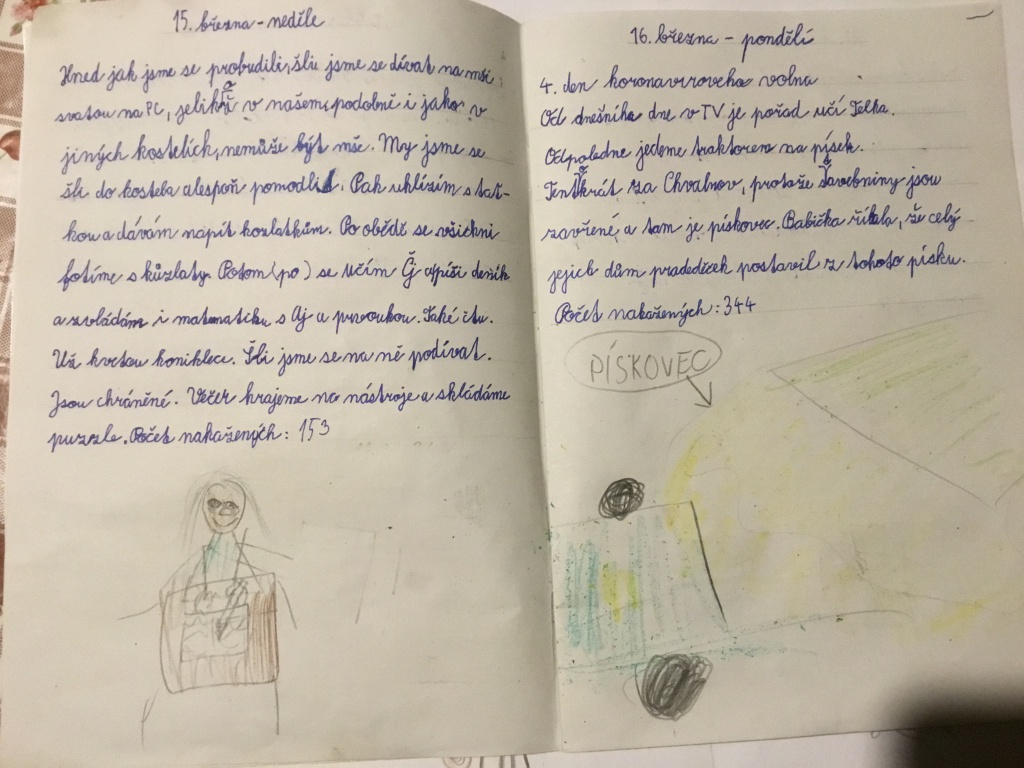 15. března - neděle
Hned jak jsme se probudili, šli jsme se dívat na mši
svatou na PC, jelikož v našem, podobně i jako v
jiných kostelích, nemůže být mše. My jsme se
šli do kostela alespoň pomodlit. Pak uklízím s tať-
kou a dávám napít kozlatkům. Po obědě se všichni
fotíme s kůzlaty. Potom (po) se učím Čj a píši deník
a zvládám i matematiku s Aj a prvouku. Také čtu.
Už kvetou koniklece. Šli jsme se na ně podívat.
Jsou chráněné. Večer hrajeme na nástroje a skládáme
puzzle. Počet nakažených: 153
16. března - pondělí
4. den koronavirového volna
Od dnešního dne v TV je pořad učí Telka.
Odpoledne jedeme traktorem na písek.
Tentokrát za Chvalnov, protože stavebniny jsou
zavřené, a tam je pískovec. Babička říkala, že celý
jejich dům pradědeček postavil z tohoto písku.
Počet nakažených: 344
PÍSKOVEC